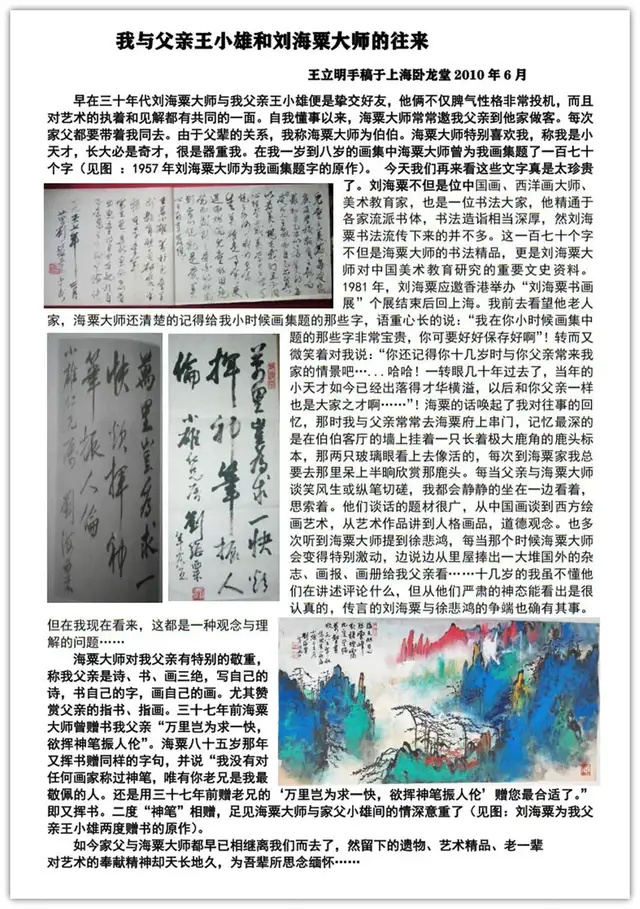 我与父亲王小雄和刘海粟大师的往来
王立明手稿于上海卧龙堂 2010 年 6 月
早在三十年代刘海粟大师与我父亲王小雄便是挚交好友，他俩不仅脾气性格非常投机，而且
对艺术的执着和见解都有共同的一面。自我懂事以来，海粟大师常常邀我父亲到他家做客。每次
家父都要带着我同去。由于父辈的关系，我称海粟大师为伯伯。海粟大师特别喜欢我，称我是小
天才，长大必是奇才，很是器重我。在我一岁到八岁的画集中海粟大师曾为我画集题了一百七十
个字（见图 ：1957 年刘海粟大师为我画集题字的原作）。 今天我们再来看这些文字真是太珍贵
了。刘海粟不但是位中国画、西洋画大师、
美术教育家，也是一位书法大家，他精通于
各家流派书体，书法造诣相当深厚，然刘海
粟书法流传下来的并不多。这一百七十个字
不但是海粟大师的书法精品，更是刘海粟大
师对中国美术教育研究的重要文史资料。
1981 年，刘海粟应邀香港举办“刘海粟书画
展”个展结束后回上海。我前去看望他老人
家，海粟大师还清楚的记得给我小时候画集题的那些字，语重心长的说：“我在你小时候画集中
题的那些字非常宝贵，你可要好好保存好啊”！转而又
微笑着对我说：“你还记得你十几岁时与你父亲常来我
家的情景吧…．哈哈！一转眼几十年过去了，当年的
小天才如今已经出落得才华横溢，以后和你父亲一样
也是大家之才啊……”！海粟的话唤起了我对往事的回
忆，那时我与父亲常常去海粟府上串门，记忆最深的
是在伯伯客厅的墙上挂着一只长着极大鹿角的鹿头标
本，那两只玻璃眼看上去像活的，每次到海粟家我总
要去那里呆上半晌欣赏那鹿头。每当父亲与海粟大师
谈笑风生或纵笔切磋，我都会静静的坐在一边看着，
思索着。他们谈话的题材很广，从中国画谈到西方绘
画艺术，从艺术作品讲到人格画品，道德观念。也多
次听到海粟大师提到徐悲鸿，每当那个时候海粟大师
会变得特别激动，边说边从里屋捧出一大堆国外的杂
志、画报、画册给我父亲看……十几岁的我虽不懂他
们在讲述评论什么，但从他们严肃的神态能看出是很
认真的，传言的刘海粟与徐悲鸿的争端也确有其事。
但在我现在看来，这都是一种观念与理
解的问题……
海粟大师对我父亲有特别的敬重，
称我父亲是诗、书、画三绝，写自己的
诗，书自己的字，画自己的画。尤其赞
赏父亲的指书、指画。三十七年前海粟
大师曾赠书我父亲“万里岂为求一快，
欲挥神笔振人伦”。海粟八十五岁那年
又挥书赠同样的字句，并说“我没有对
任何画家称过神笔，唯有你老兄是我最
敬佩的人。还是用三十七年前赠老兄的‘万里岂为求一快，欲挥神笔振人伦’赠您最合适了。”
即又挥书。二度“神笔”相赠，足见海粟大师与家父小雄间的情深意重了（见图：刘海粟为我父
亲王小雄两度赠书的原作）。
如今家父与海粟大师都早已相继离我们而去了，然留下的遗物、艺术精品、老一辈
对艺术的奉献精神却天长地久，为吾辈所思念缅怀……
萬里豈為求一
快欲揮神
筆振人倫
小雄仁兄属 劉海粟
萬里豈為求一快欲
揮神筆振人
倫
小雄仁兄属 劉海粟